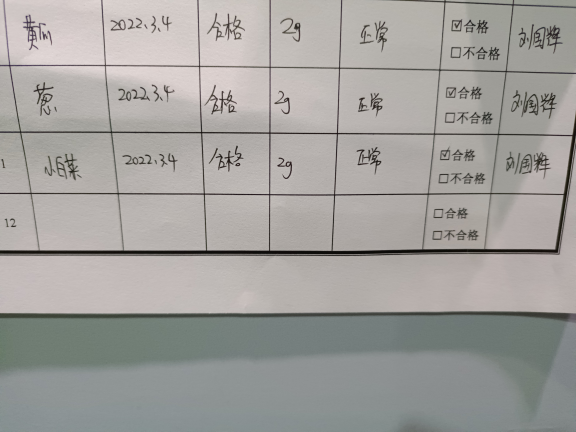 黄瓜 2022.3.4 合格 2g 正常 ☑合格 刘国辉
□不合格
葱 2022.3.4 合格 2g 正常 ☑合格 刘国辉
□不合格
1 小白菜 2022.3.4 合格 2g 正常 ☑合格 刘国辉
□不合格
12 □合格
□不合格